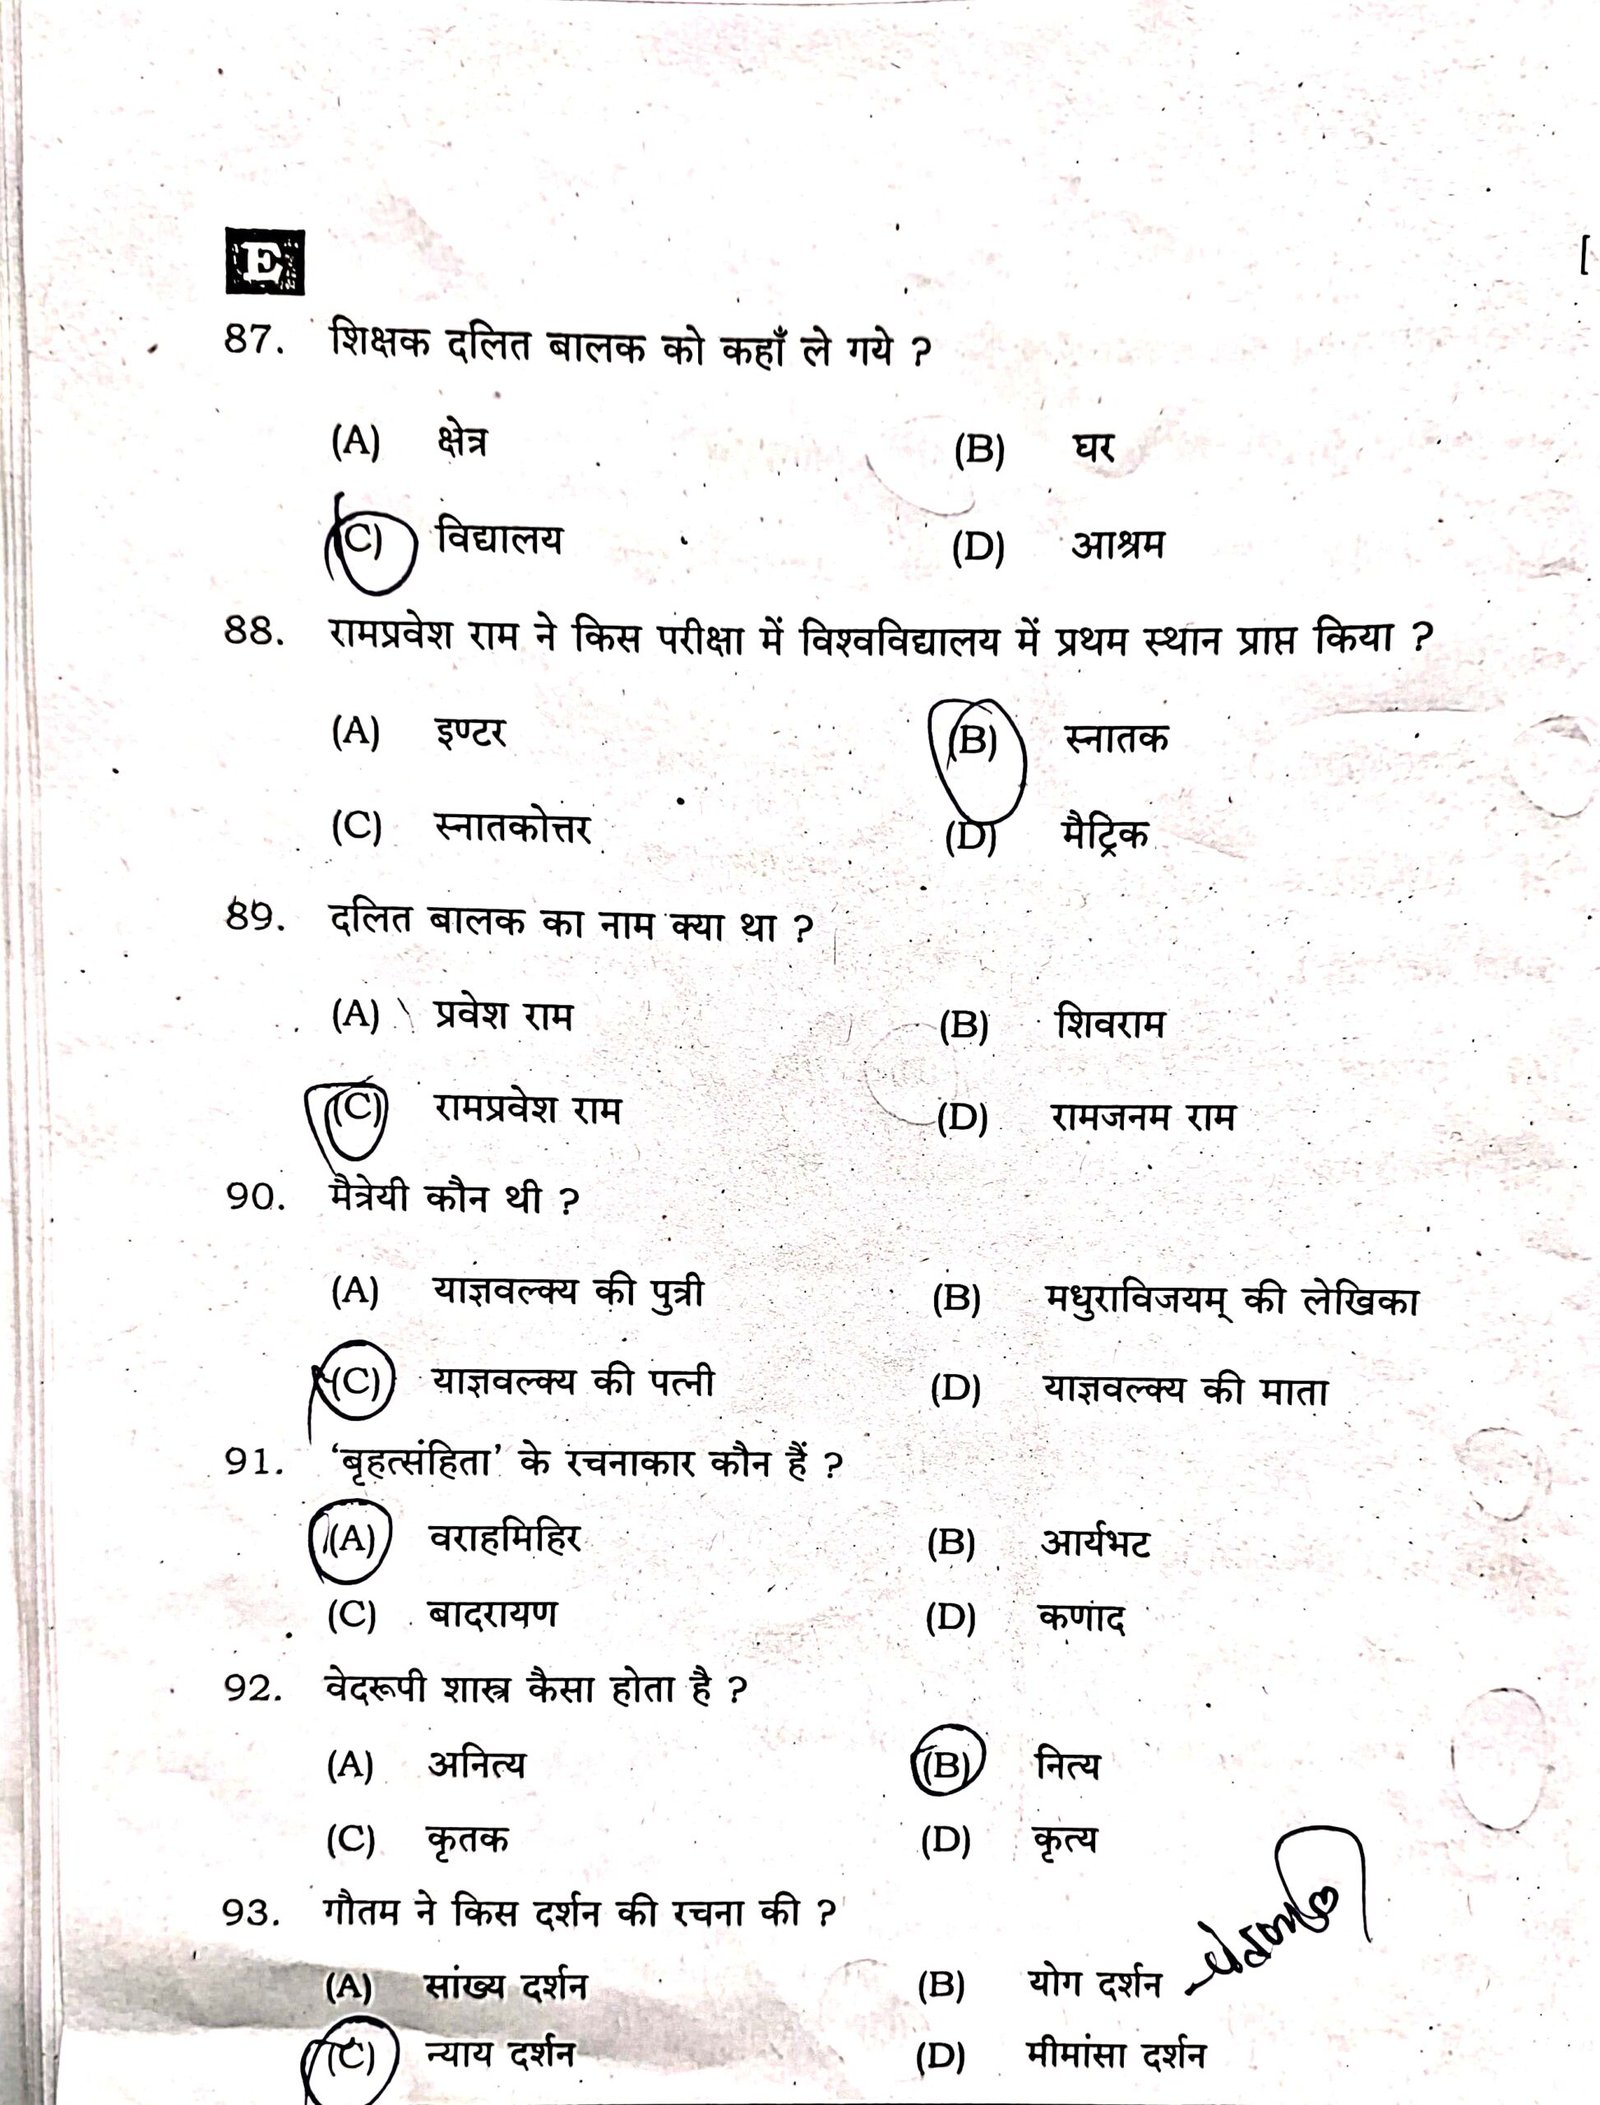 E
[
87. शिक्षक दलित बालक को कहाँ ले गये ?
(A) क्षेत्र (B) घर
(C) विद्यालय (D) आश्रम
88. रामप्रवेश राम ने किस परीक्षा में विश्वविद्यालय में प्रथम स्थान प्राप्त किया ?
(A) इण्टर (B) स्नातक
(C) स्नातकोत्तर (D) मैट्रिक
89. दलित बालक का नाम क्या था ?
(A) प्रवेश राम (B) शिवराम
(C) रामप्रवेश राम (D) रामजनम राम
90. मैत्रेयी कौन थी ?
(A) याज्ञवल्क्य की पुत्री (B) मधुराविजयम् की लेखिका
(C) याज्ञवल्क्य की पत्नी (D) याज्ञवल्क्य की माता
91. 'बृहत्संहिता' के रचनाकार कौन हैं ?
(A) वराहमिहिर (B) आर्यभट
(C) बादरायण (D) कणाद
92. वेदरूपी शास्त्र कैसा होता है ?
(A) अनित्य (B) नित्य
(C) कृतक (D) कृत्य
93. गौतम ने किस दर्शन की रचना की ?
(A) सांख्य दर्शन (B) योग दर्शन
(C) न्याय दर्शन (D) मीमांसा दर्शन